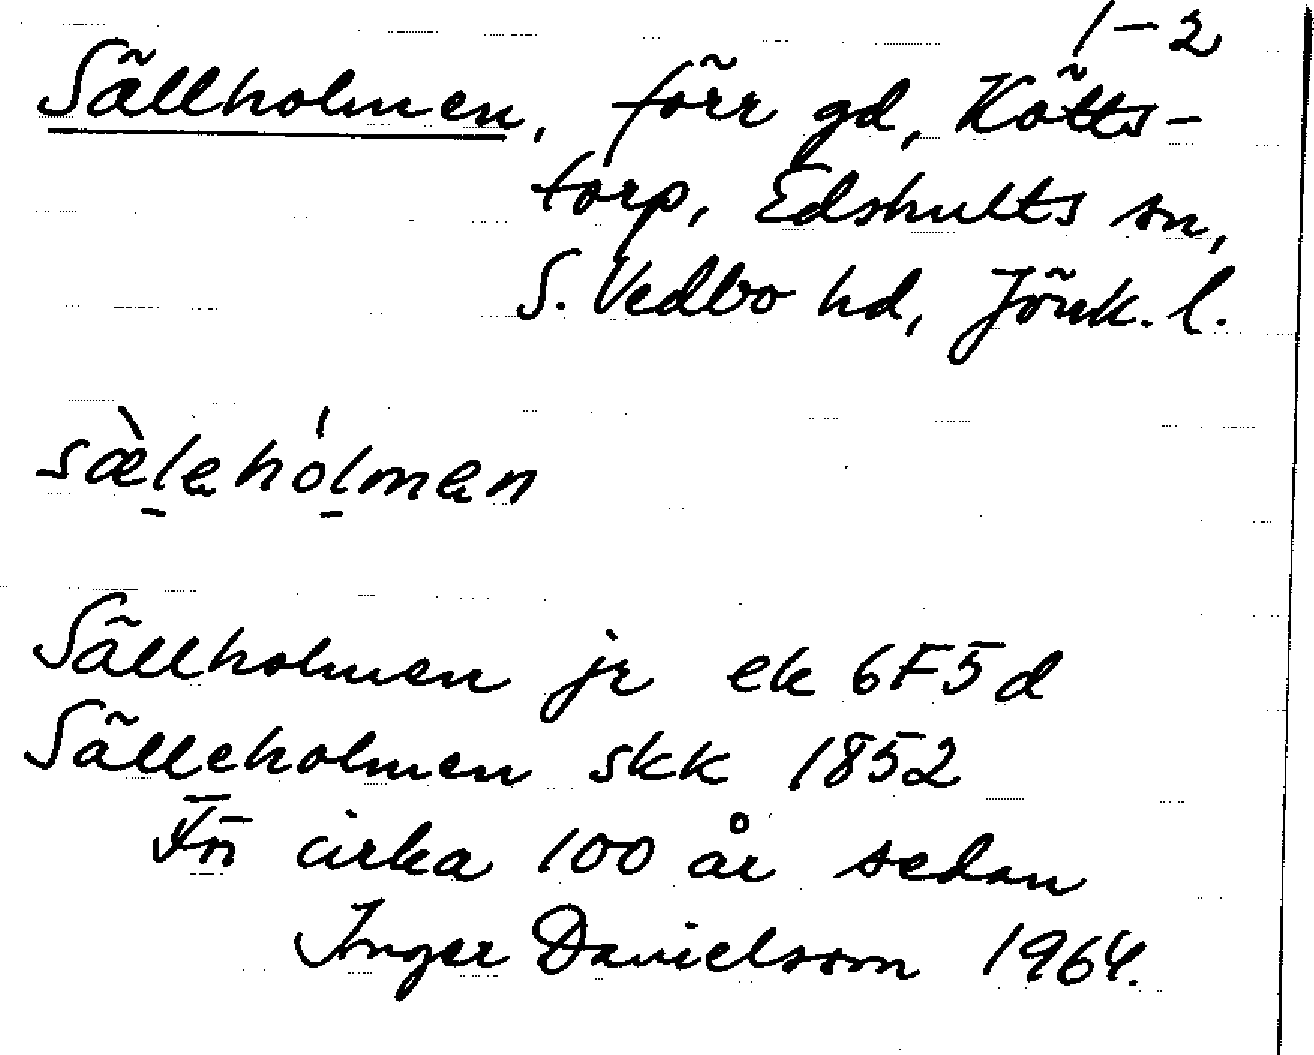 1-2
Sällholmen, förr gd, Kötts-
torp, Edshults sn,
S. Vedbo hd, Jönk. l.
sæ̀ləhólmən
Sällholmen jr ek 6F5d
Sälleholmen skk 1852
För cirka 100 år sedan
Inger Danielsson 1964.